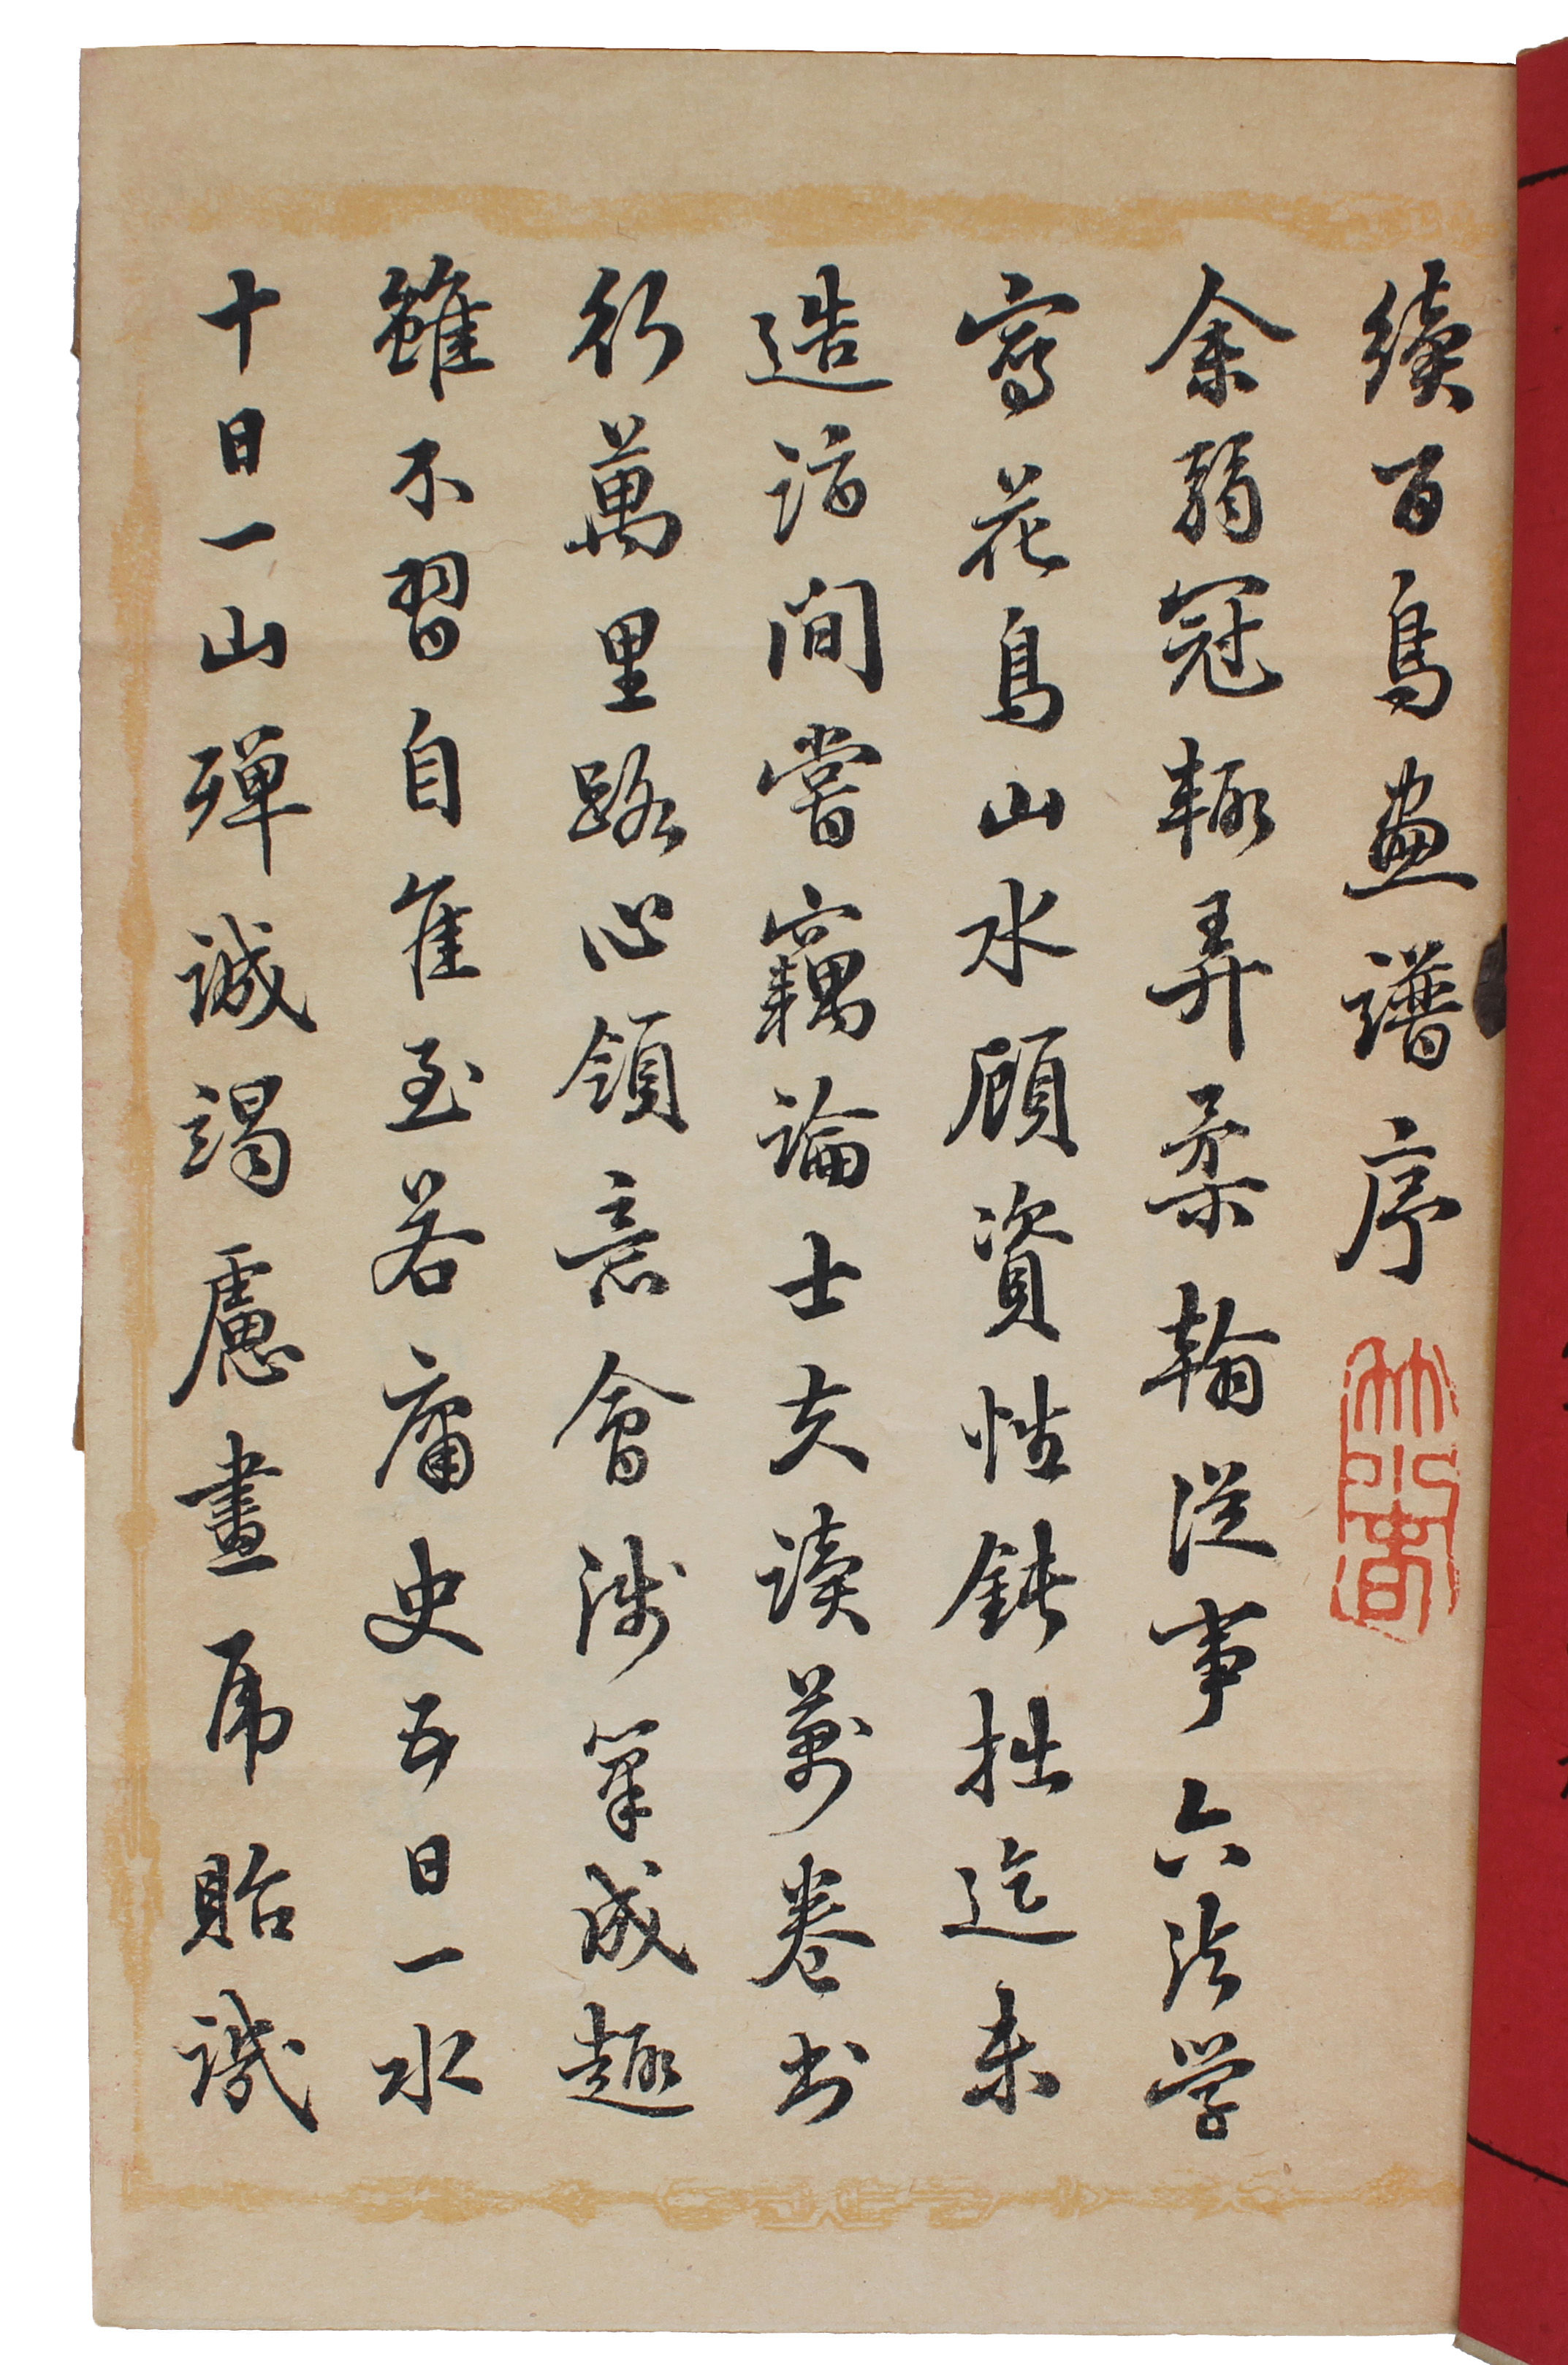 續百鳥畫譜序
余弱冠輒弄柔翰從事六法學
寫花鳥山水顧資性鈍拙迄未
造詣間嘗竊論士夫读萬卷书
行萬里路心領意會涉筆成趣
雖不習自隹至若庸史五日一水
十日一山殫誠竭慮畫虎貽譏